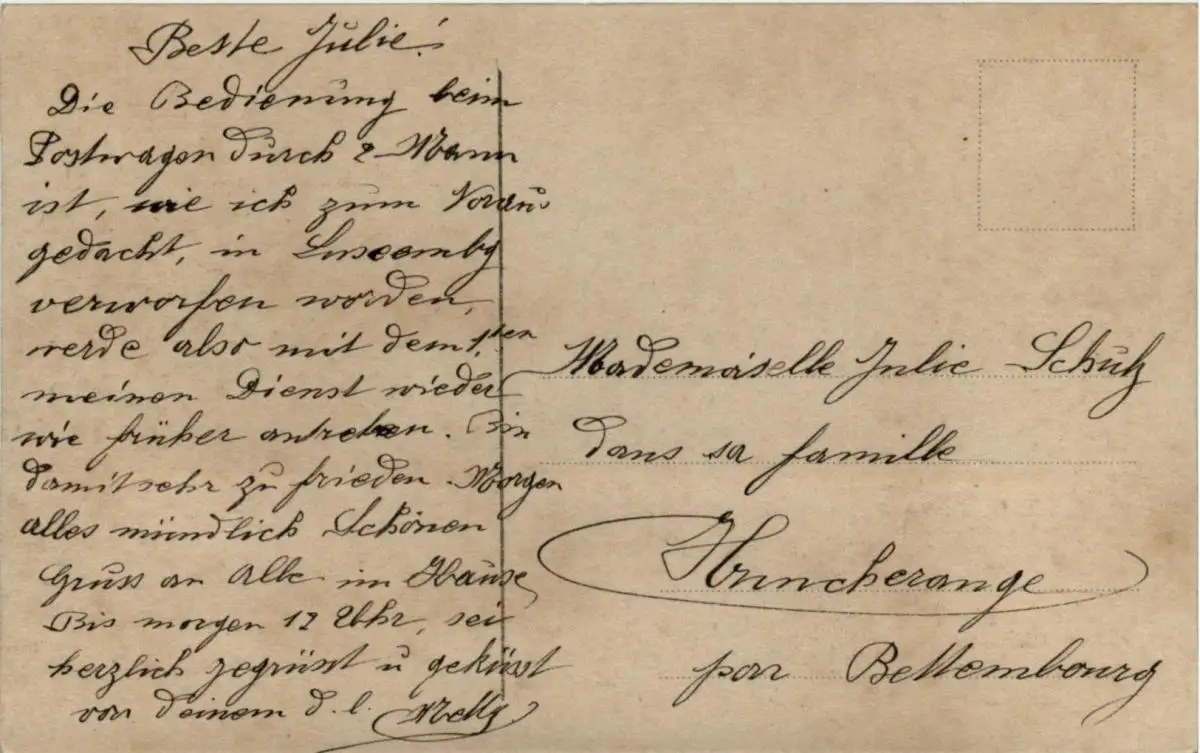 Beste Julie!
Die Bedienung beim
Postwagen durch 2 Mann
ist, wie ich zum Voraus
gedacht, in Luxembg
verworfen worden,
werde also mit dem 1.ten
meinen Dienst wieder
wie früher antreten. Bin
damit sehr zu frieden. Morgen
alles mündlich Schönen
Gruss an Alle im Hause
Bis morgen 12 Uhr, sei
herzlich gegrüsst u geküsst
von deinem d. l.
Mademoiselle Julie Schulz
dans sa famille
Huncherange
par Bettembourg